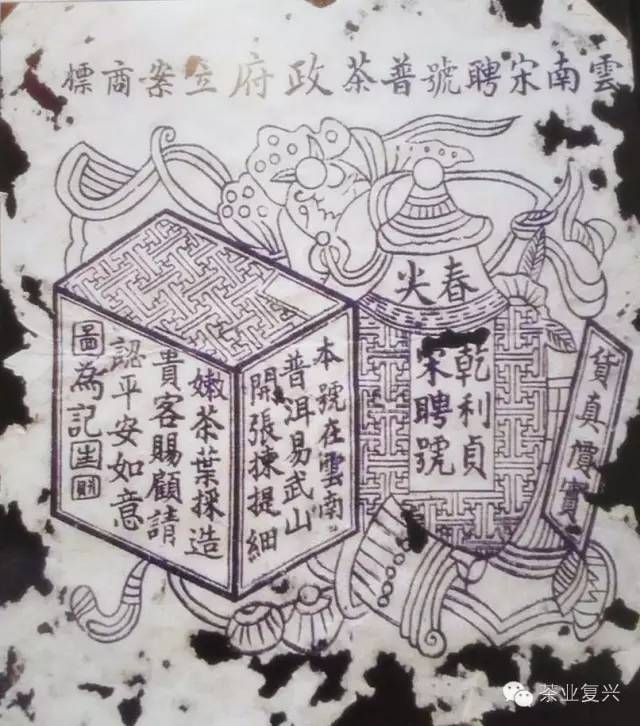 雲南宋聘號普茶政府立案商標
春尖
乾利貞
宋聘號
貨真價實
本號在雲南
普洱易武山
開張揀提細
嫩茶葉採造
貴客賜顧請
認平安如意
圖為記
生財
茶业复兴